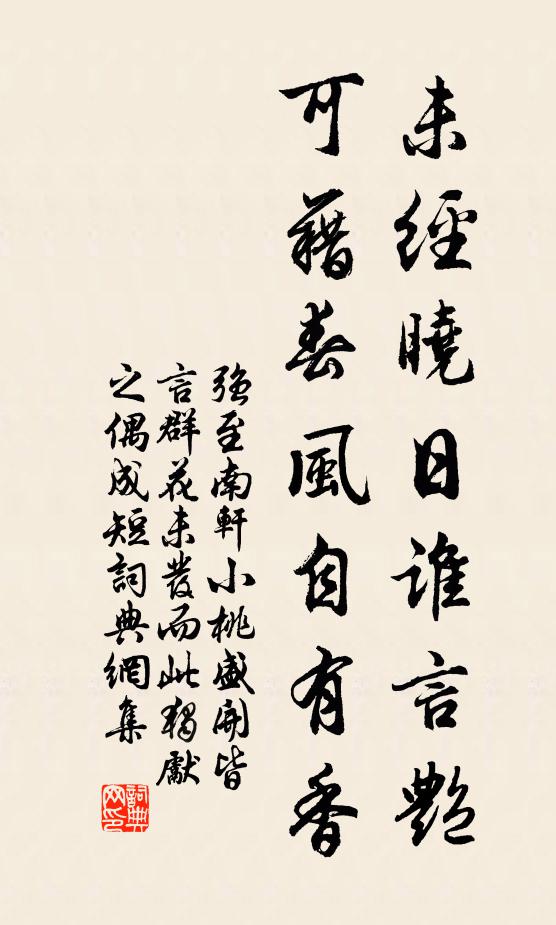 未經曉日誰言艷
可藉春風自有香
强至南軒小桃盛開皆
言群花未發而此獨獻
之偶成短詞典網集
詞典网印